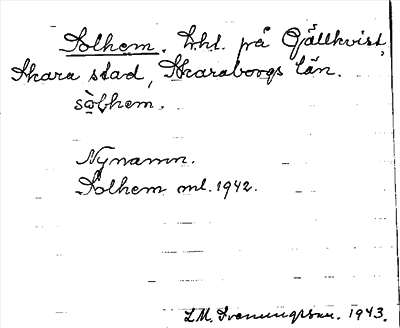 Solhem. Lht. på Gjällkvist,
Skara stad, Skaraborgs län.
sòlhem.
Nynamn.
Solhem ml. 1942.
I.M. Svenungsson. 1943.